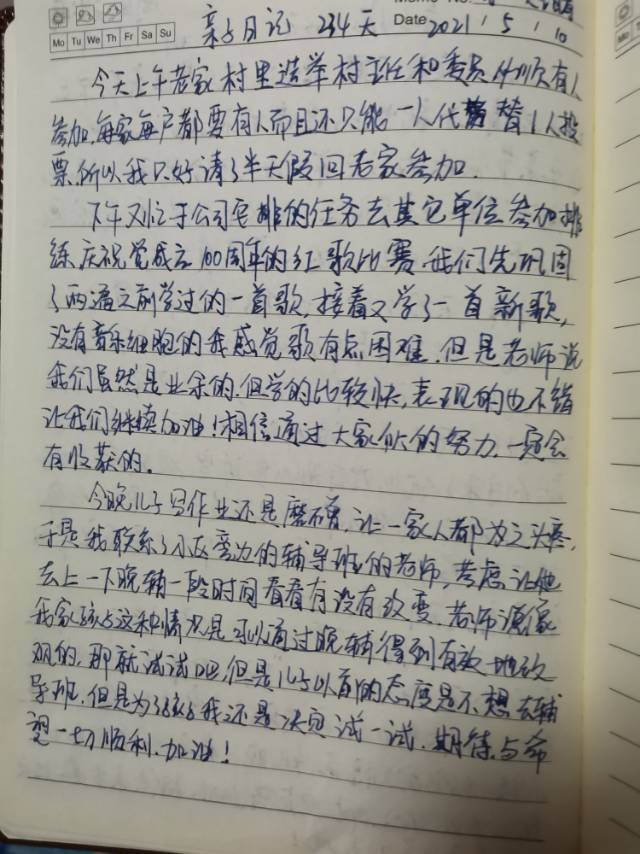 亲子日记 234天 Date 2021/5/10
Mo Tu We Th Fr Sa Su
今天上午老家村里选举村主任和委员
参加,每家每户都要有人而且还只能一人代替1人投
票所以我只好请了半天假回老家参加.
下午又忙于公司安排的任务去其它单位参加排
练庆祝党成立100周年的红歌比赛,我们先巩固
了两遍之前学过的一首歌,接着又学了一首新歌,
没有音乐细胞的我感觉歌有点困难.但是老师说
我们虽然是业余的.但学的比较快,表现的也不错
让我们继续加油!相信通过大家伙的努力.一定会
有收获的.
今晚儿子写作业还是磨蹭,让一家人都为之头疼,
于是我联系了小区旁边的辅导班的老师,考虑让他
去上一下晚辅一段时间看看有没有改变.老师说像
我家孩子这种情况是可以通过晚辅得到有效地改
观的,那就试试吧,但是儿子以前的态度是不想去辅
导班.但是为了孩子我还是决定试一试.期待与希
望一切顺利.加油!